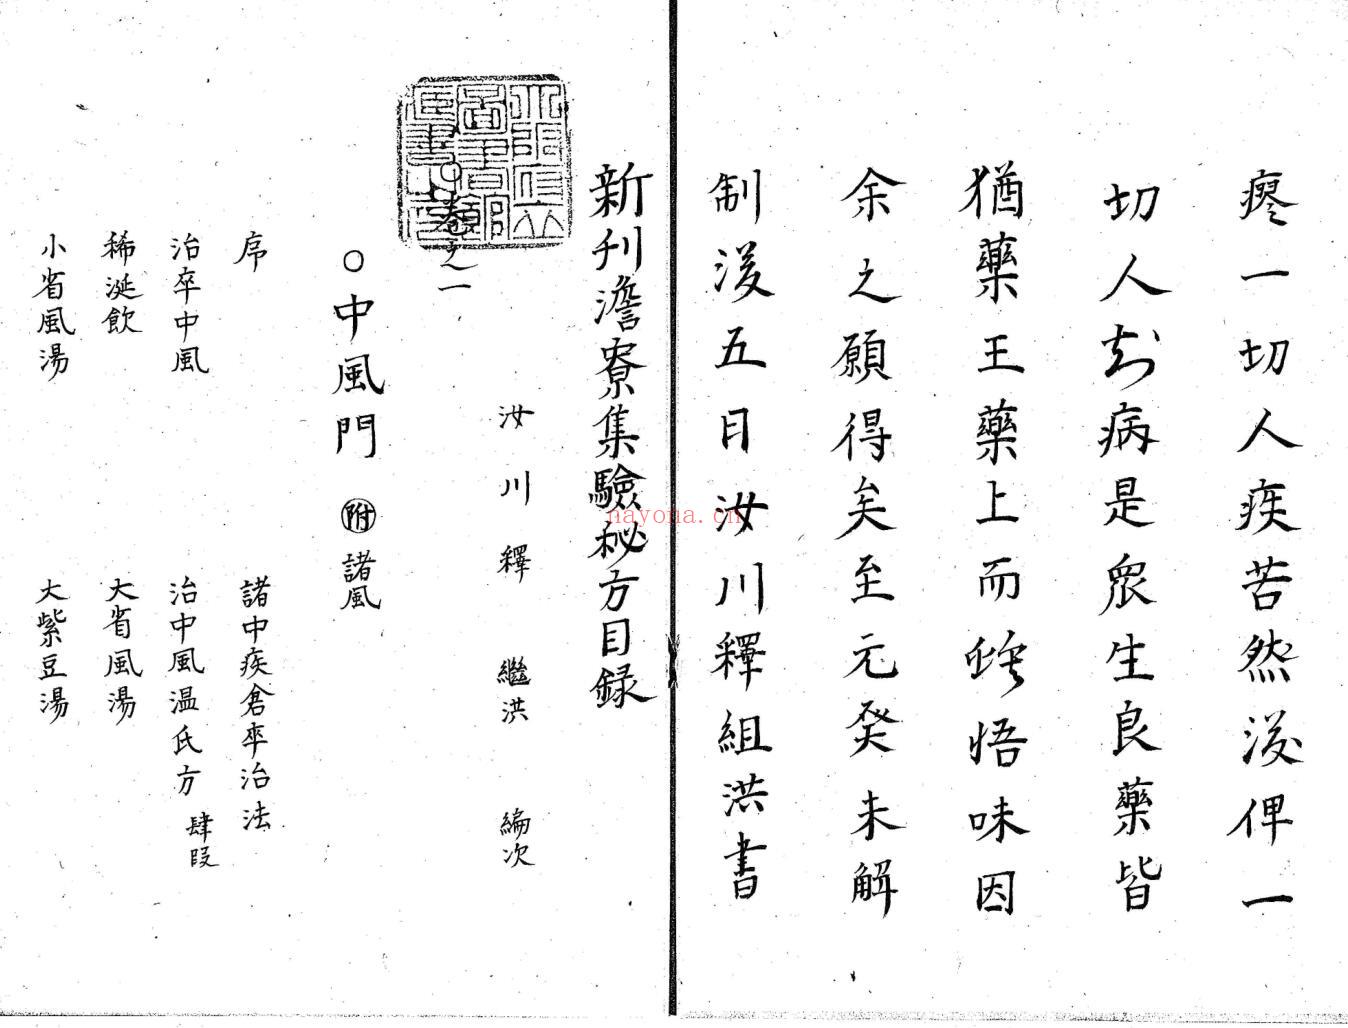 瘳一切人疾苦然後俾一
切人知病是眾生良藥皆
猶藥王藥上而能悟味因
余之願得矣至元癸未解
制後五日汝川釋組洪書
新刊澹寮集驗秘方目録
汝川釋 繼洪 編次
○卷之一
○中風門 附 諸風
序 諸中疾倉卒治法
治卒中風 治中風温氏方 肆段
稀涎飲 大省風湯
小省風湯 大紫豆湯
nayona.cn